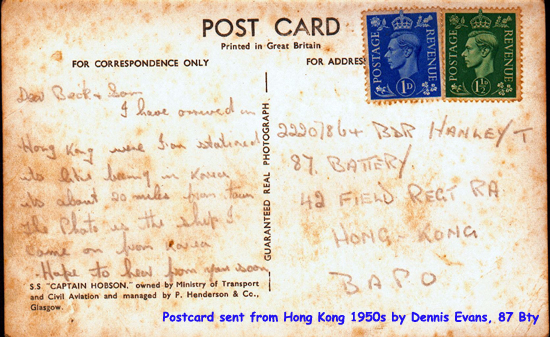 POST CARD
Printed in Great Britain
FOR CORRESPONDENCE ONLY
FOR ADDRESS
POSTAGE REVENUE
1D
POSTAGE REVENUE
1½D
Dear Beck & Sam
I have arrived in
Hong Kong were I am stationed
its like being in Korea
its about 20 miles from town
the Photo is the ship I
came on from korea
Hope to hear from you soon
GUARANTEED REAL PHOTOGRAPH
BDR HANLEY T
87. BATTERY.
42 FIELD REGT RA
HONG-KONG
BAPO
S.S "CAPTAIN HOBSON," owned by Ministry of Transport
and Civil Aviation and managed by P. Henderson & Co.,
Glasgow.
Postcard sent from Hong Kong 1950s by Dennis Evans, 87 Bty